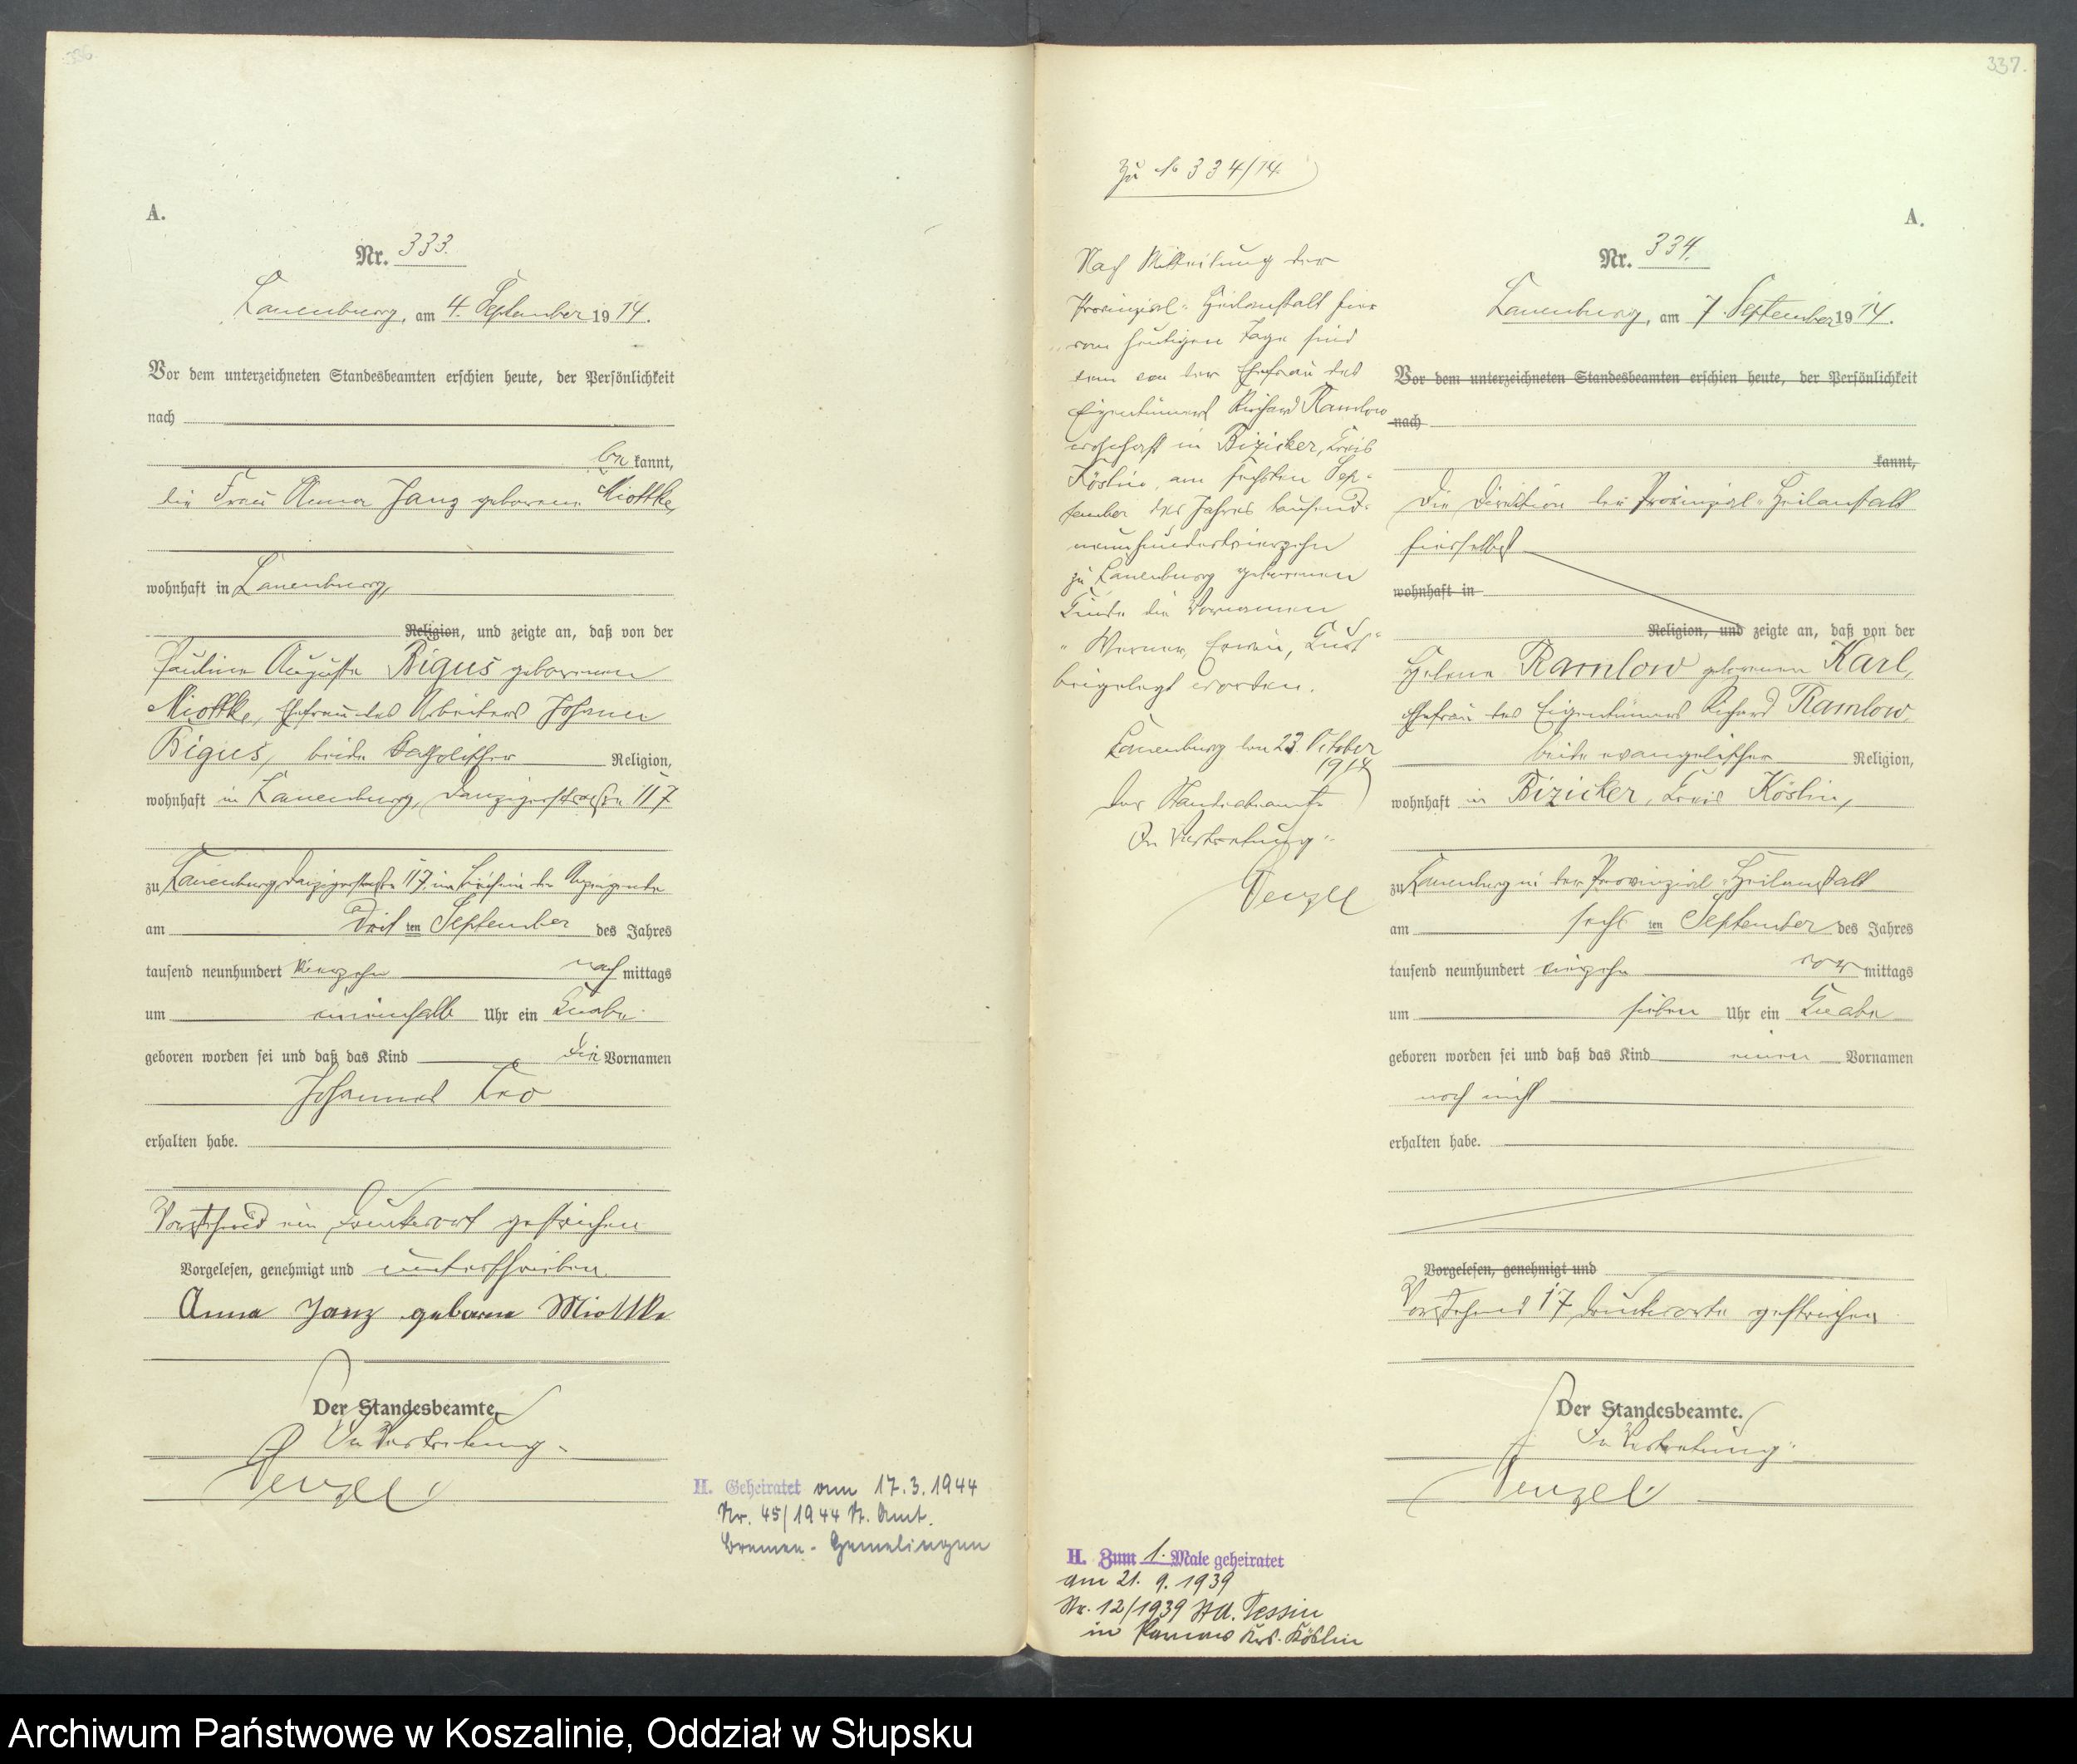 336.
A.
Nr. 333.
Lauenburg, am 4. September 1914.
Vor dem unterzeichneten Standesbeamten erschien heute, der Persönlichkeit
nach
be kannt,
die Frau Anna Janz geborene Miottke,
wohnhaft in Lauenburg,
Religion, und zeigte an, daß von der
Pauline Auguste Bigus geborenen
Miottke, Ehefrau des Arbeiters Johann
Bigus, beide katholischer Religion,
wohnhaft in Lauenburg, Danzigerstraße 117
zu Lauenburg, Danzigerstraße 117, im Beisein der Anzeigende
am drit ten September des Jahres
tausend neunhundert vierzehn nach mittags
um eineinhalb Uhr ein Knabe
geboren worden sei und daß das Kind die Vornamen
Johannes Leo
erhalten habe.
Vorstehend ein Druckwort gestrichen
Vorgelesen, genehmigt und unterschrieben.
Anna Janz geborene Miottke
Der Standesbeamte.
In Vertretung.
Wenzel
H. Geheiratet am 17.3.1944
Nr. 45/1944 St. Amt.
Bremen - Hemelingen
337.
Zu № 334/14.
Nach Mitteilung der
Provinzial-Heilanstalt hier
vom heutigen Tage sind
dem von der Ehefrau des
Eigentümers Richard Ramlow
wohnhaft in Bizicker, Kreis
Köslin, am sechsten Sep-
tember des Jahres tausend-
neunhundertvierzehn
zu Lauenburg geborenen
Kinde die Vornamen
"Werner, Erwin, Kurt"
beigelegt worden.
Lauenburg den 23. Oktober
1914
Der Standesbeamte
In Vertretung:
Wenzel
H. Zum 1. Male geheiratet
am 21. 9. 1939
Nr. 12/1939 StA. Tessin
in Parnow Krs. Köslin
A.
Nr. 334.
Lauenburg, am 7. September 1914.
Vor dem unterzeichneten Standesbeamten erschien heute, der Persönlichkeit
nach
kannt,
Die Direktion der Provinzial-Heilanstalt
hierselbst
wohnhaft in
Religion, und zeigte an, daß von der
Helene Ramlow geborenen Karl,
Ehefrau des Eigentümers Richard Ramlow,
beide evangelischer Religion,
wohnhaft in Bizicker, Kreis Köslin,
zu Lauenburg in der Provinzial-Heilanstalt
am sechs ten September des Jahres
tausend neunhundert vierzehn vor mittags
um sieben Uhr ein Knabe
geboren worden sei und daß das Kind einen Vornamen
noch nicht
erhalten habe.
Vorgelesen, genehmigt und
Vorstehend 17 Druckworte gestrichen
Der Standesbeamte.
In Vertretung:
Wenzel
Archiwum Państwowe w Koszalinie, Oddział w Słupsku